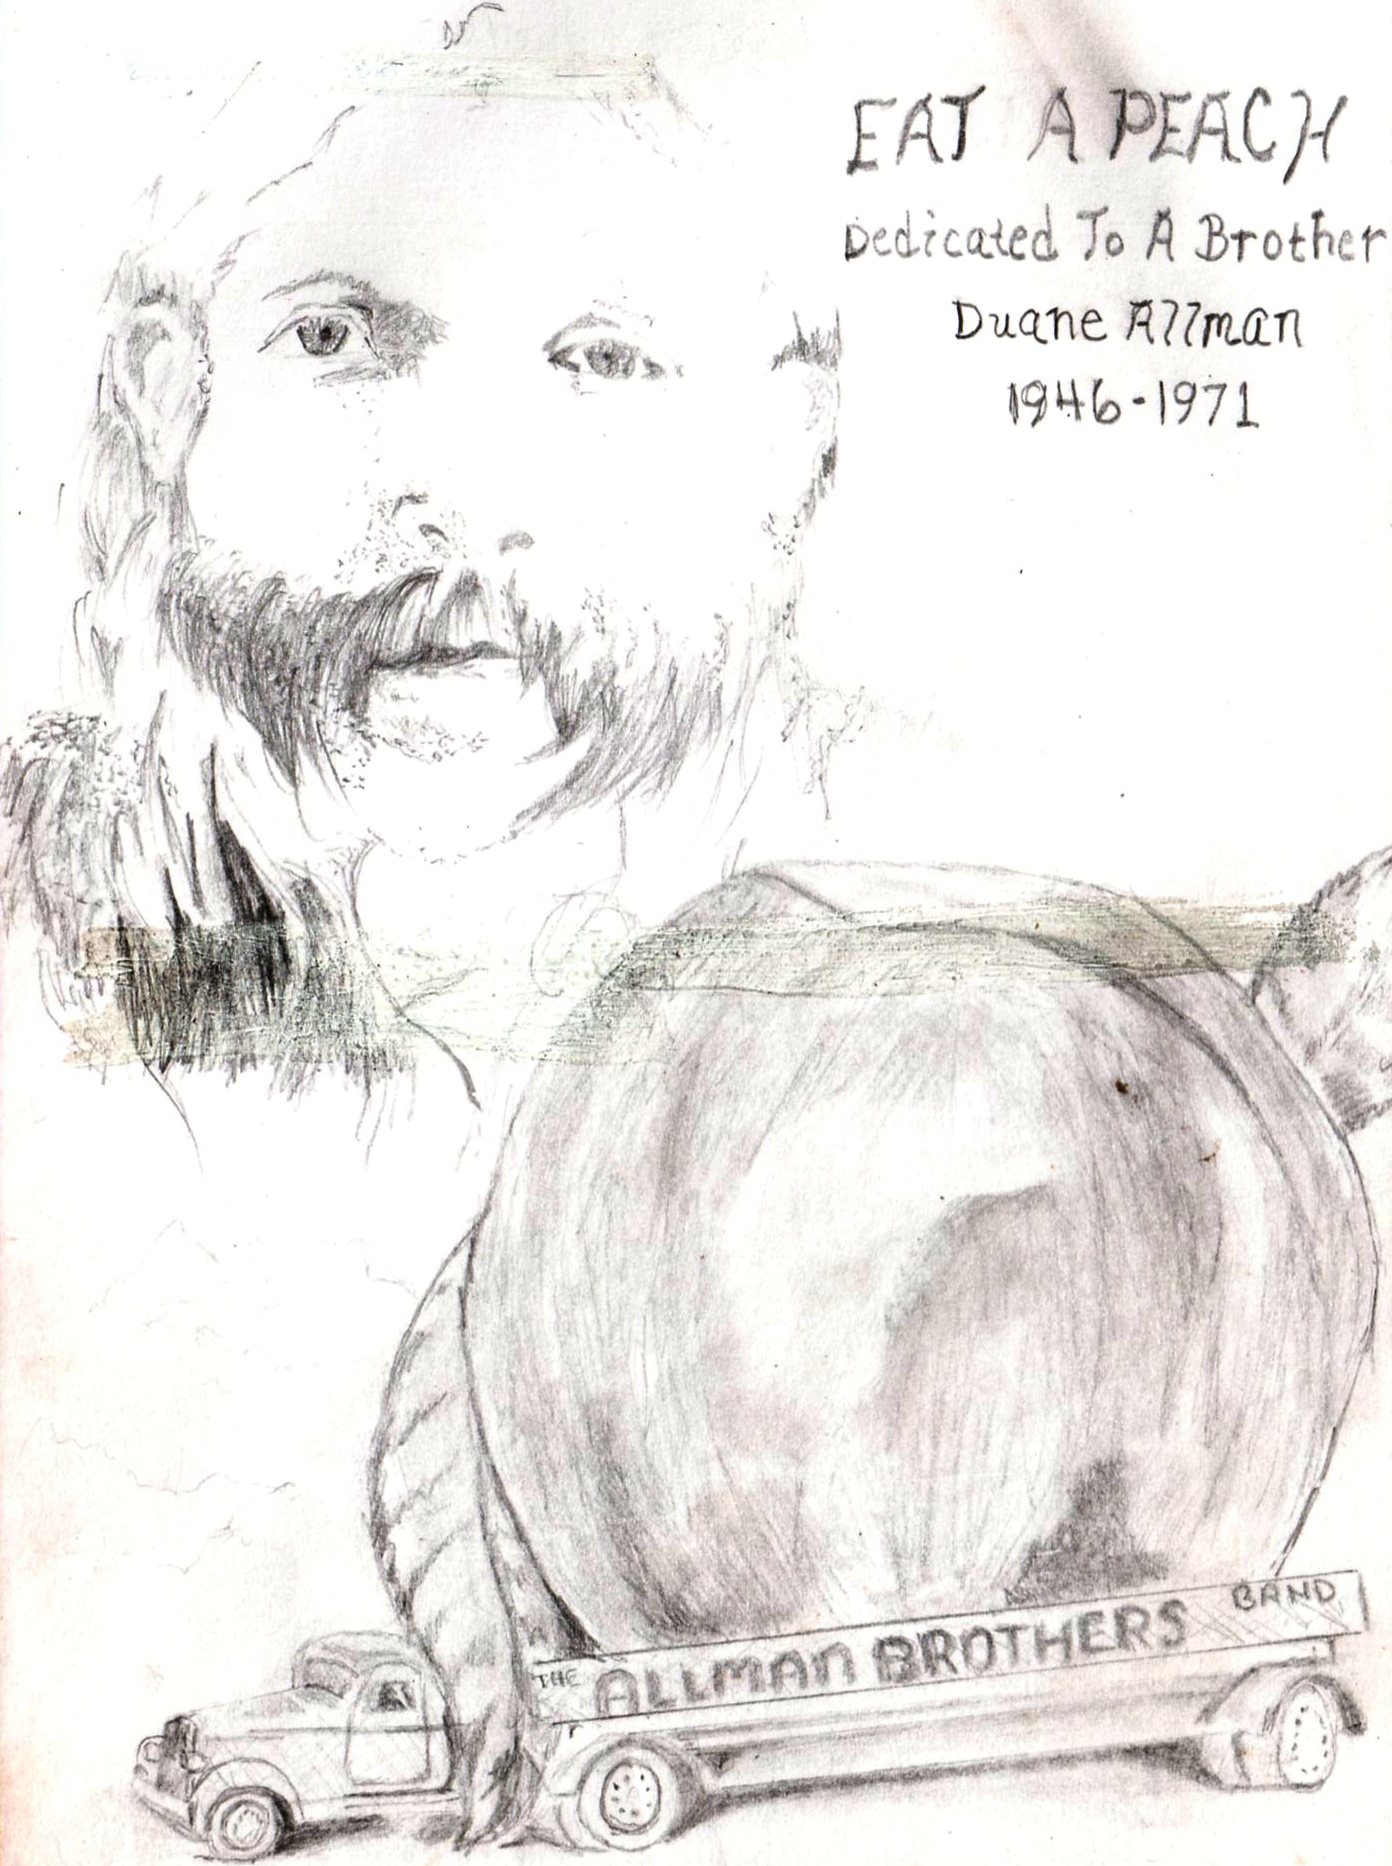 EAT A PEACH
Dedicated To A Brother
Duane Allman
1946-1971
THE ALLMAN BROTHERS BAND